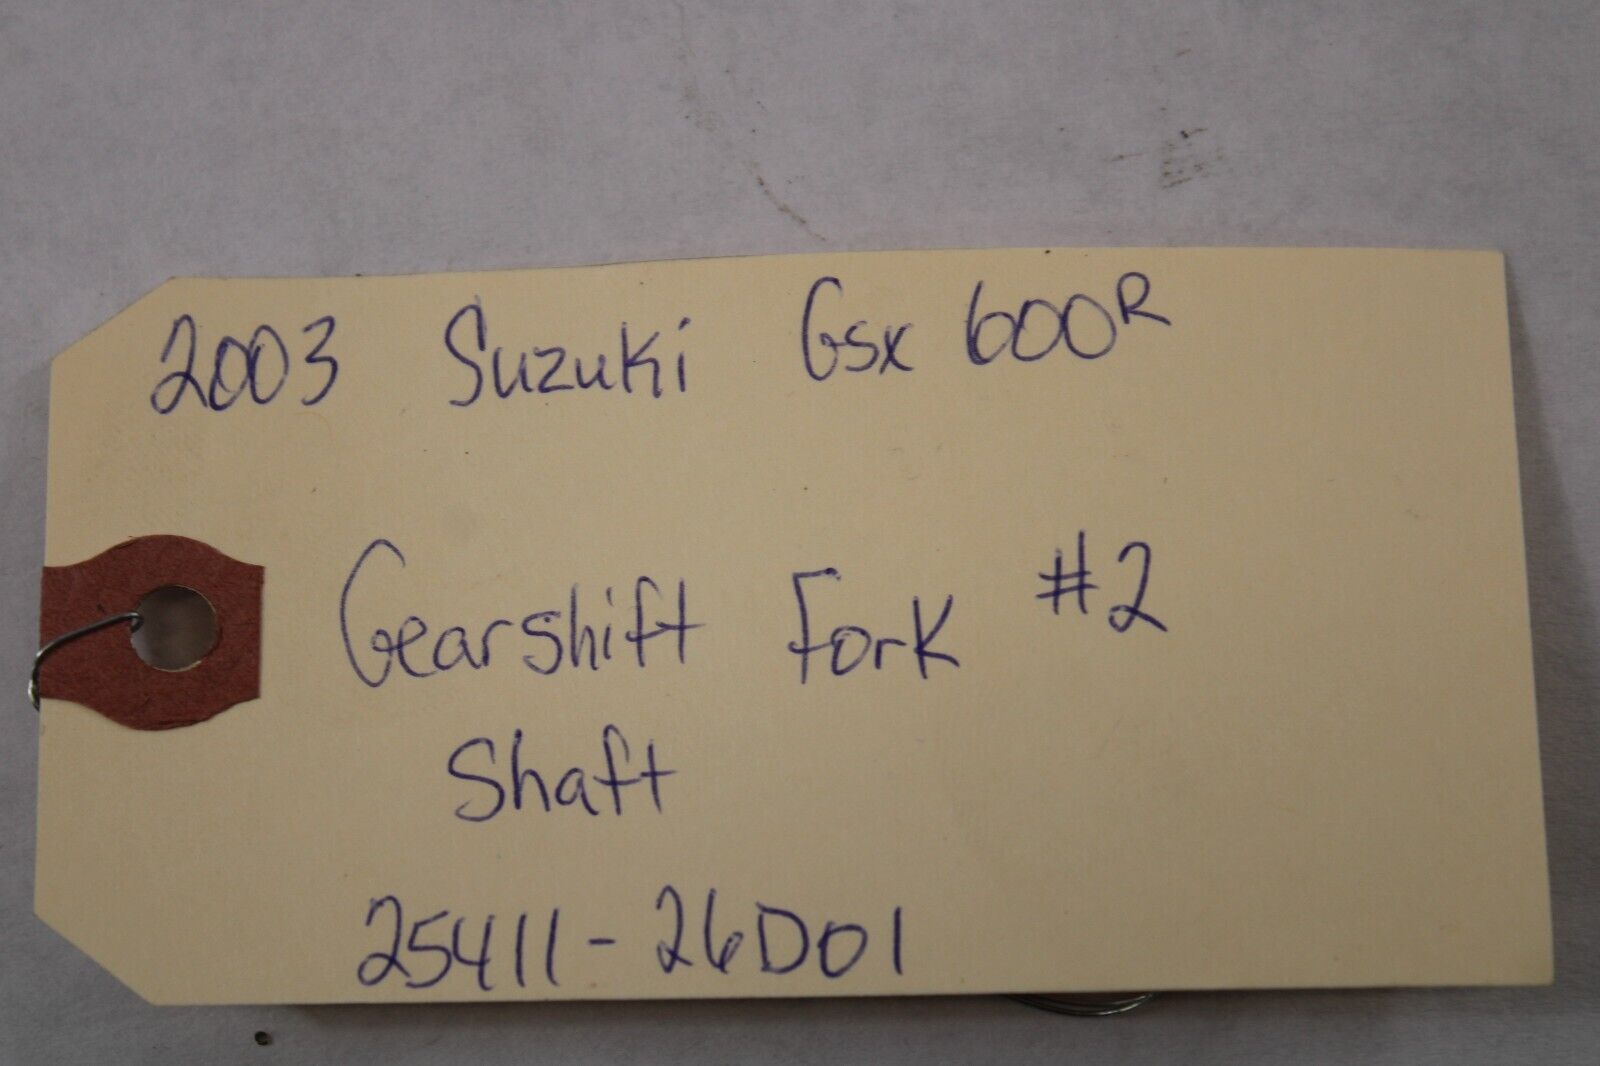 2003 Suzuki Gsx 600R
Gearshift Fork #2
Shaft
25411-26D01